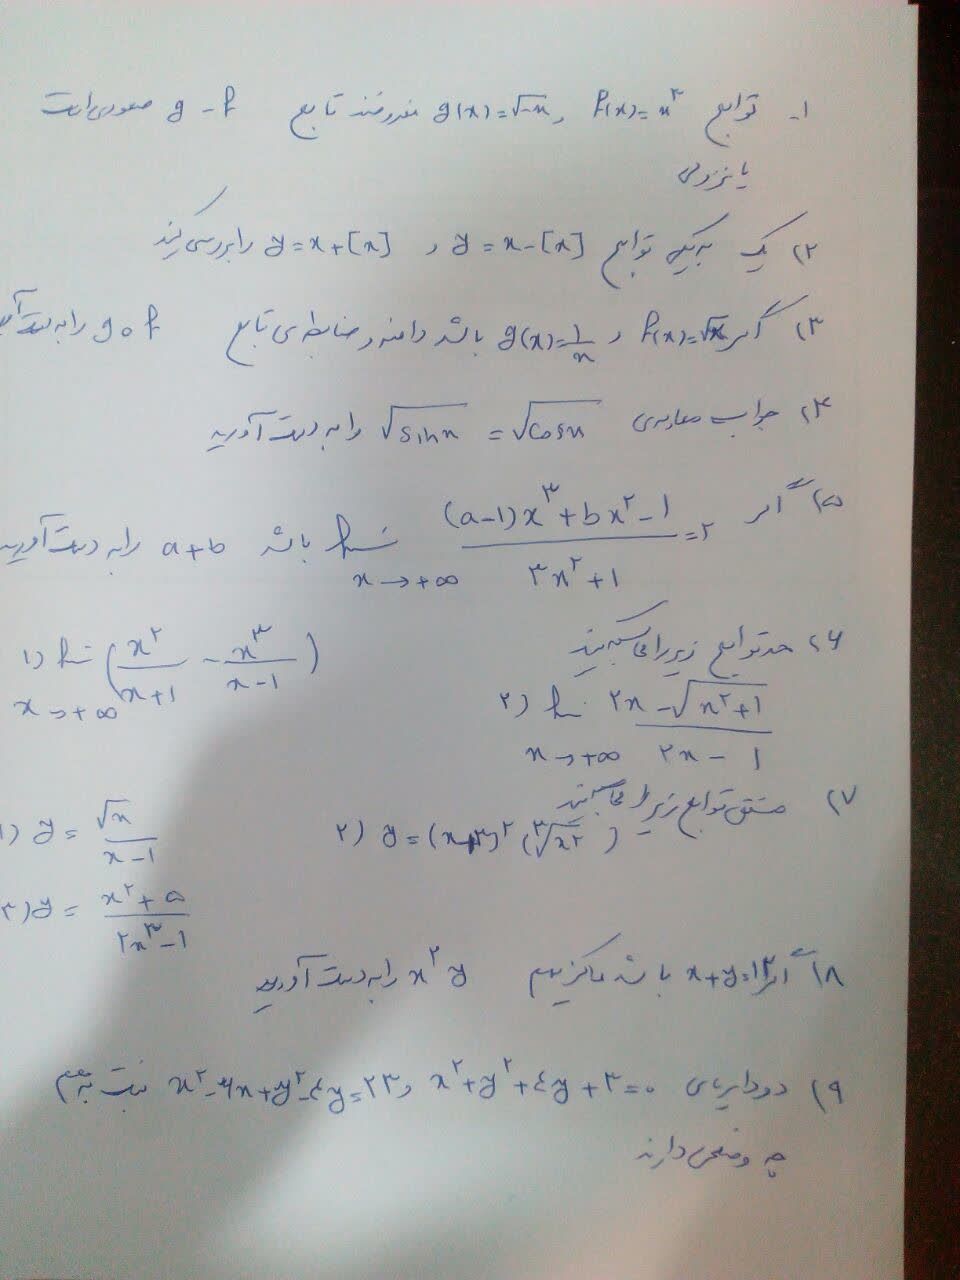 ۱- توابع f(x)=x^۳ و g(x)=√-x مفروضند تابع g-f صعودی است
یا نزولی
۲) یک به یکی توابع y=x-[x] و y=x+[x] را بررسی کنید
۳) اگر f(x)=√x و g(x)=1/x باشد دامنه و ضابطه‌ی تابع gof را به دست آ
۴) جواب معادله‌ی √sinx = √cosx را به دست آورید
۵) اگر lim x→+∞ ((a-1)x^۳+bx^۲-1)/(۳x^۲+1)=۲ باشد a+b را به دست آورید
۶) حد توابع زیر را محاسبه کنید
۱) lim x→+∞ (x^۲/(x+1) - x^۳/(x-1))
۲) lim x→+∞ (۲x-√(x^۲+1))/(۲x-1)
۷) مشتق توابع زیر را محاسبه کنید
۱) y = √x/(x-1)
۲) y = (x+۳)^۲ (^۳√x^۲)
۳) y = (x^۲+۵)/(۲x^۳-1)
۸) اگر x+y=۱۲ باشد ماکزیمم x^۲y را به دست آورید
۹) دو دایره‌ی x^۲+y^۲+٤y+۳=۰ و x^۲-۶x+y^۲-٤y=۲۳ نسبت به هم
چه وضعی دارند